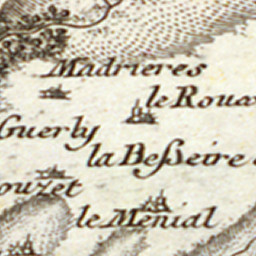 Madrieres
le Roux
Guerly
la Beſseire
ouzet
le Menial